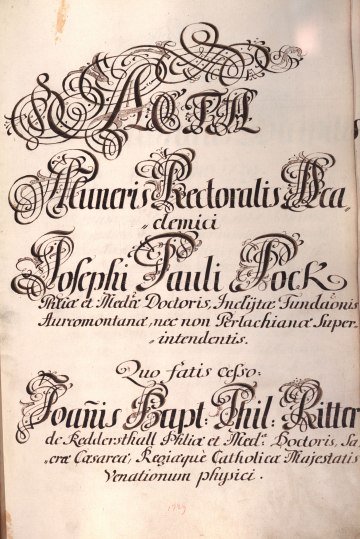 ACTA
Muneris Rectoralis Aca-
demici
Josephi Pauli Pock
Philiæ et Medæ Doctoris, Inclijtæ Fundaõnis
Aureomontanæ, nec non Perlachianæ Super-
intendentis.
Quo fatis cesso:
Joañis Bapt: Phil: Ritter
de Reddersthall Philiæ et Med. Doctoris, Sa-
cræ Cæsareæ, Regiæque Catholicæ Majestatis
Venationum physici.